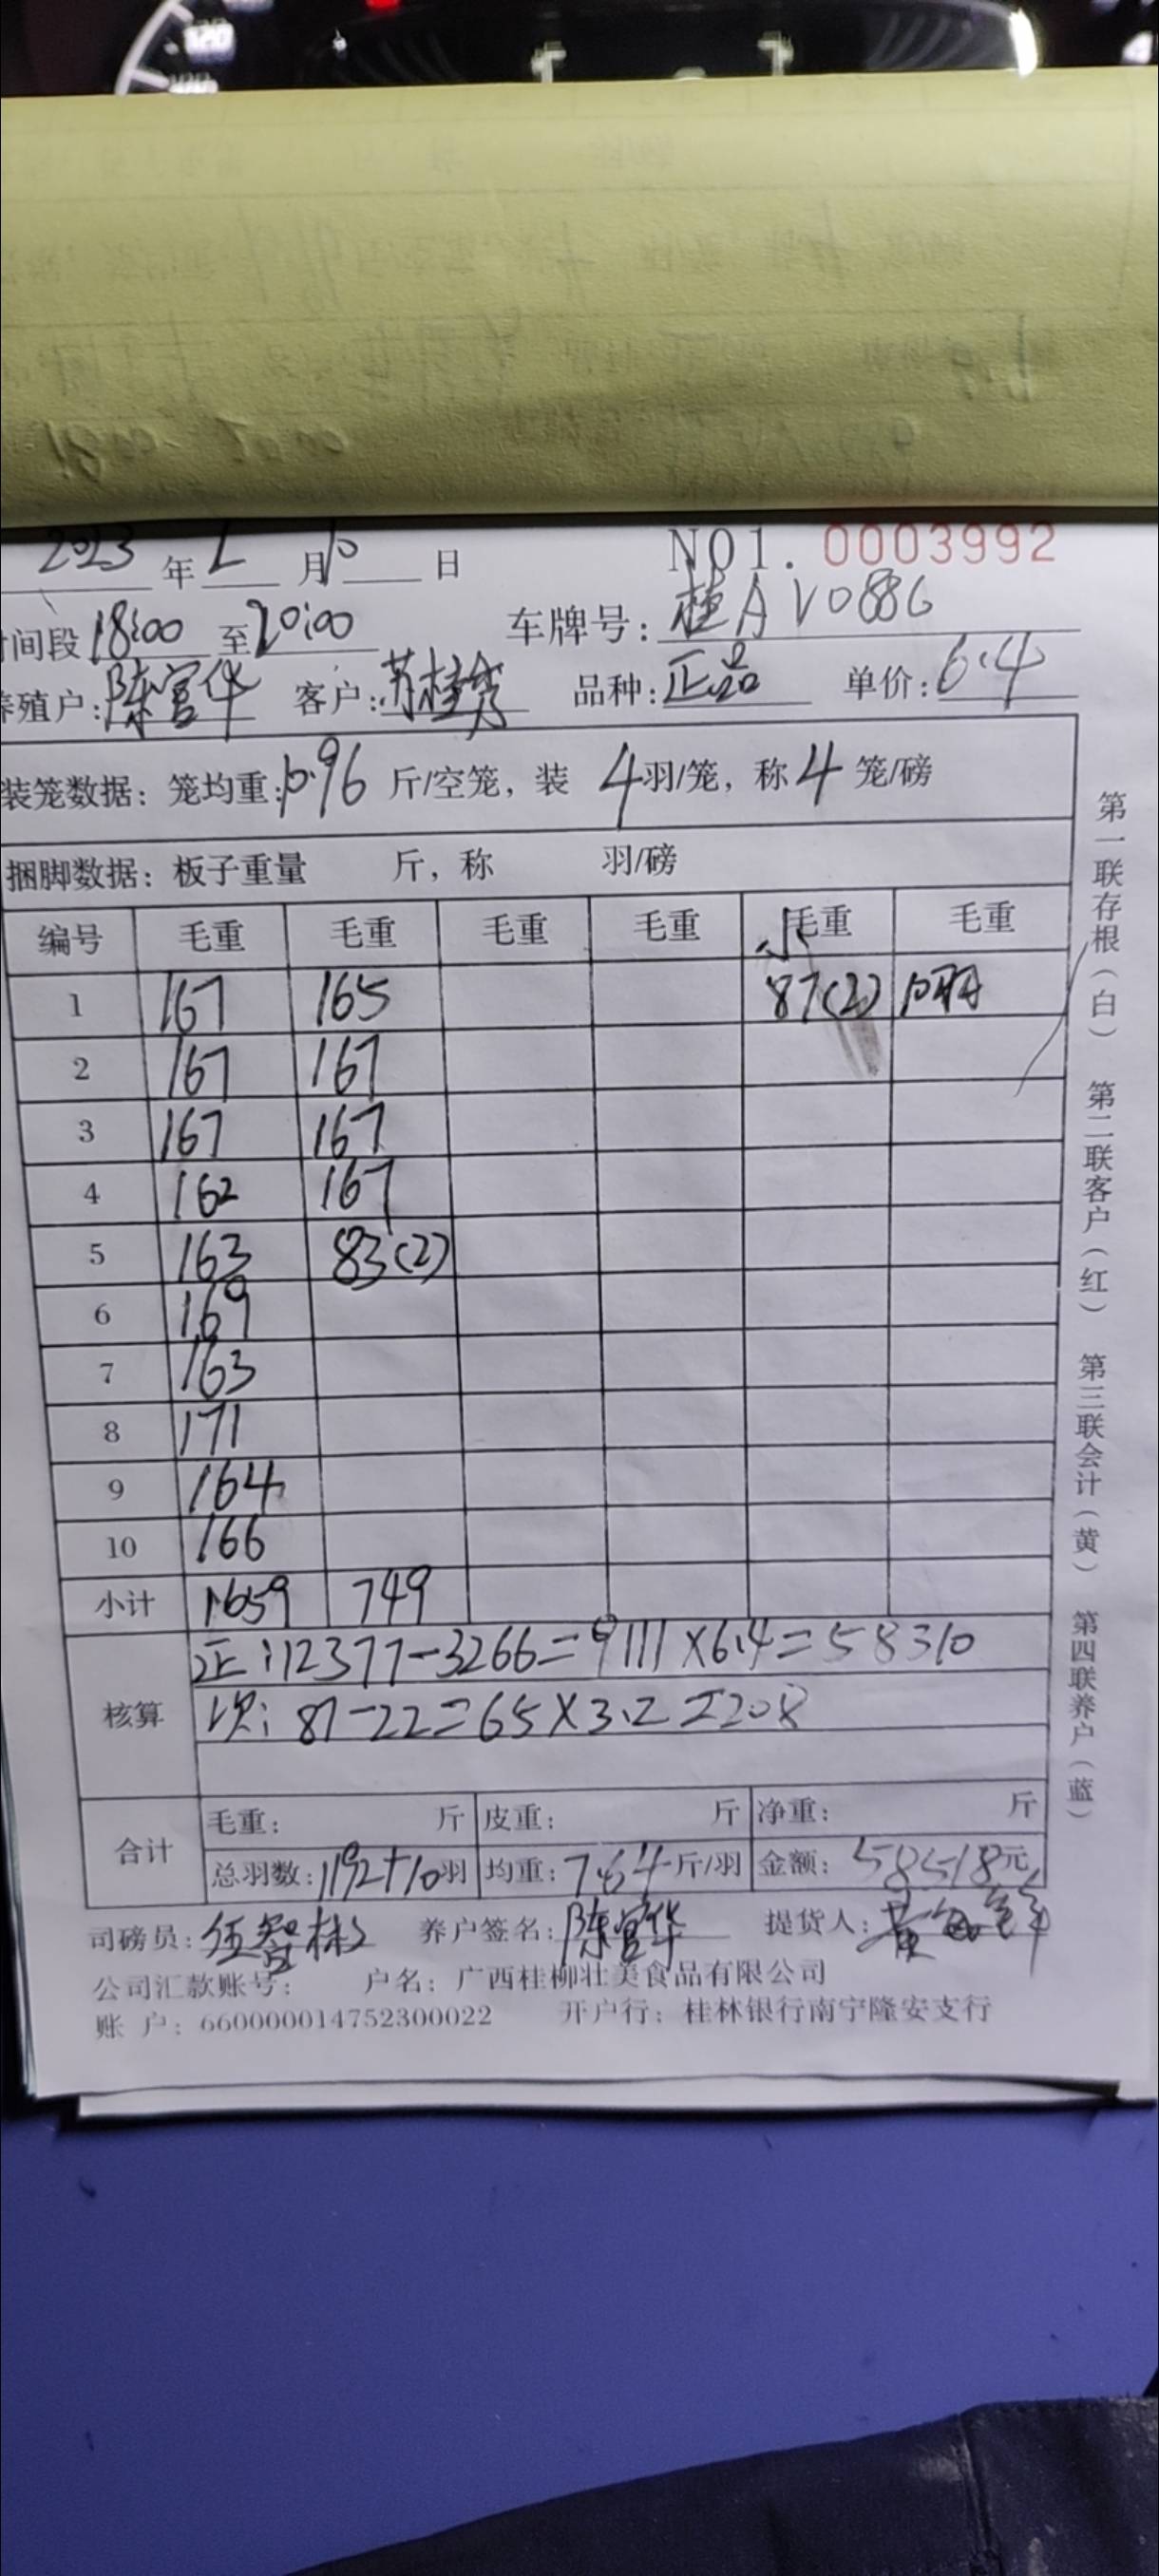 2023 年 2 月 10 日 NO1. 0003992
时间段 18:00 至 20:00 车牌号: 桂A V0886
养殖户: 陈官华 客户: 苏桂秀 品种: 正品 单价: 6.4
装笼数据: 笼均重: 10.96 斤/空笼, 装 4 羽/笼, 称 4 笼/磅
捆脚数据: 板子重量 斤, 称 羽/磅
编号 毛重 毛重 毛重 毛重 小 毛重 毛重
1 167 165 87(2) 10羽
2 167 167
3 167 167
4 162 167
5 163 83(2)
6 169
7 163
8 171
9 164
10 166
小计 1659 749
核算 正: 12377-3266=9111×6.4=58310
次: 87-22=65×3.2=208
合计 毛重: 斤 皮重: 斤 净重: 斤
总羽数: 1192+10羽 均重: 7.64斤/羽 金额: 58518元
司磅员: 伍智彬 养户签名: 陈官华 提货人: 黄
公司汇款账号: 户名: 广西桂柳壮美食品有限公司
账 户: 660000014752300022 开户行: 桂林银行南宁隆安支行
第一联存根(白) 第二联客户(红) 第三联会计(黄) 第四联养户(蓝)